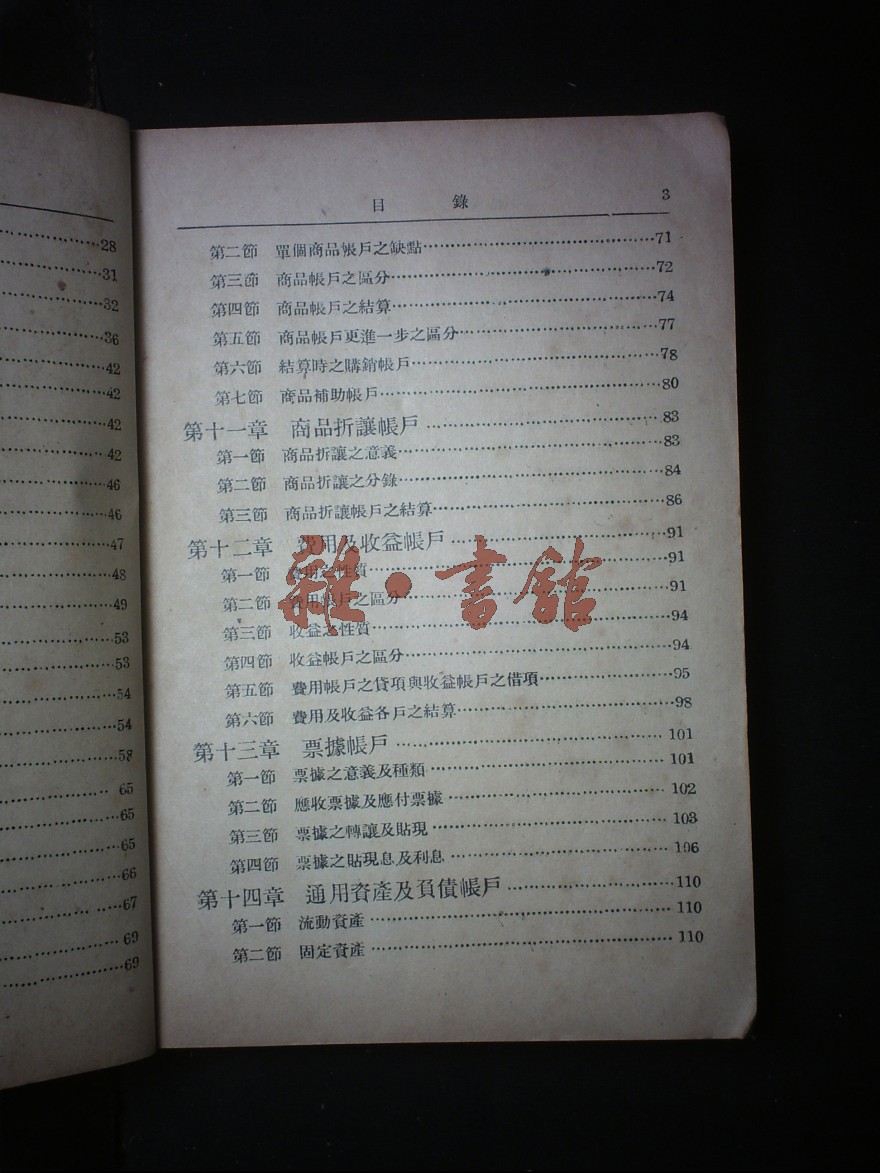 28
31
32
36
42
42
42
42
46
46
47
48
49
53
53
54
54
58
65
65
65
66
67
69
69
目 錄 3
第二節 單個商品帳戶之缺點……71
第三節 商品帳戶之區分……72
第四節 商品帳戶之結算……74
第五節 商品帳戶更進一步之區分……77
第六節 結算時之購銷帳戶……78
第七節 商品補助帳戶……80
第十一章 商品折讓帳戶……83
第一節 商品折讓之意義……83
第二節 商品折讓之分錄……84
第三節 商品折讓帳戶之結算……86
第十二章 費用及收益帳戶……91
第一節 費用之性質……91
第二節 費用帳戶之區分……91
第三節 收益之性質……94
第四節 收益帳戶之區分……94
第五節 費用帳戶之貸項與收益帳戶之借項……95
第六節 費用及收益各戶之結算……98
第十三章 票據帳戶……101
第一節 票據之意義及種類……101
第二節 應收票據及應付票據……102
第三節 票據之轉讓及貼現……103
第四節 票據之貼現息及利息……106
第十四章 通用資產及負債帳戶……110
第一節 流動資產……110
第二節 固定資產……110
雜·書館